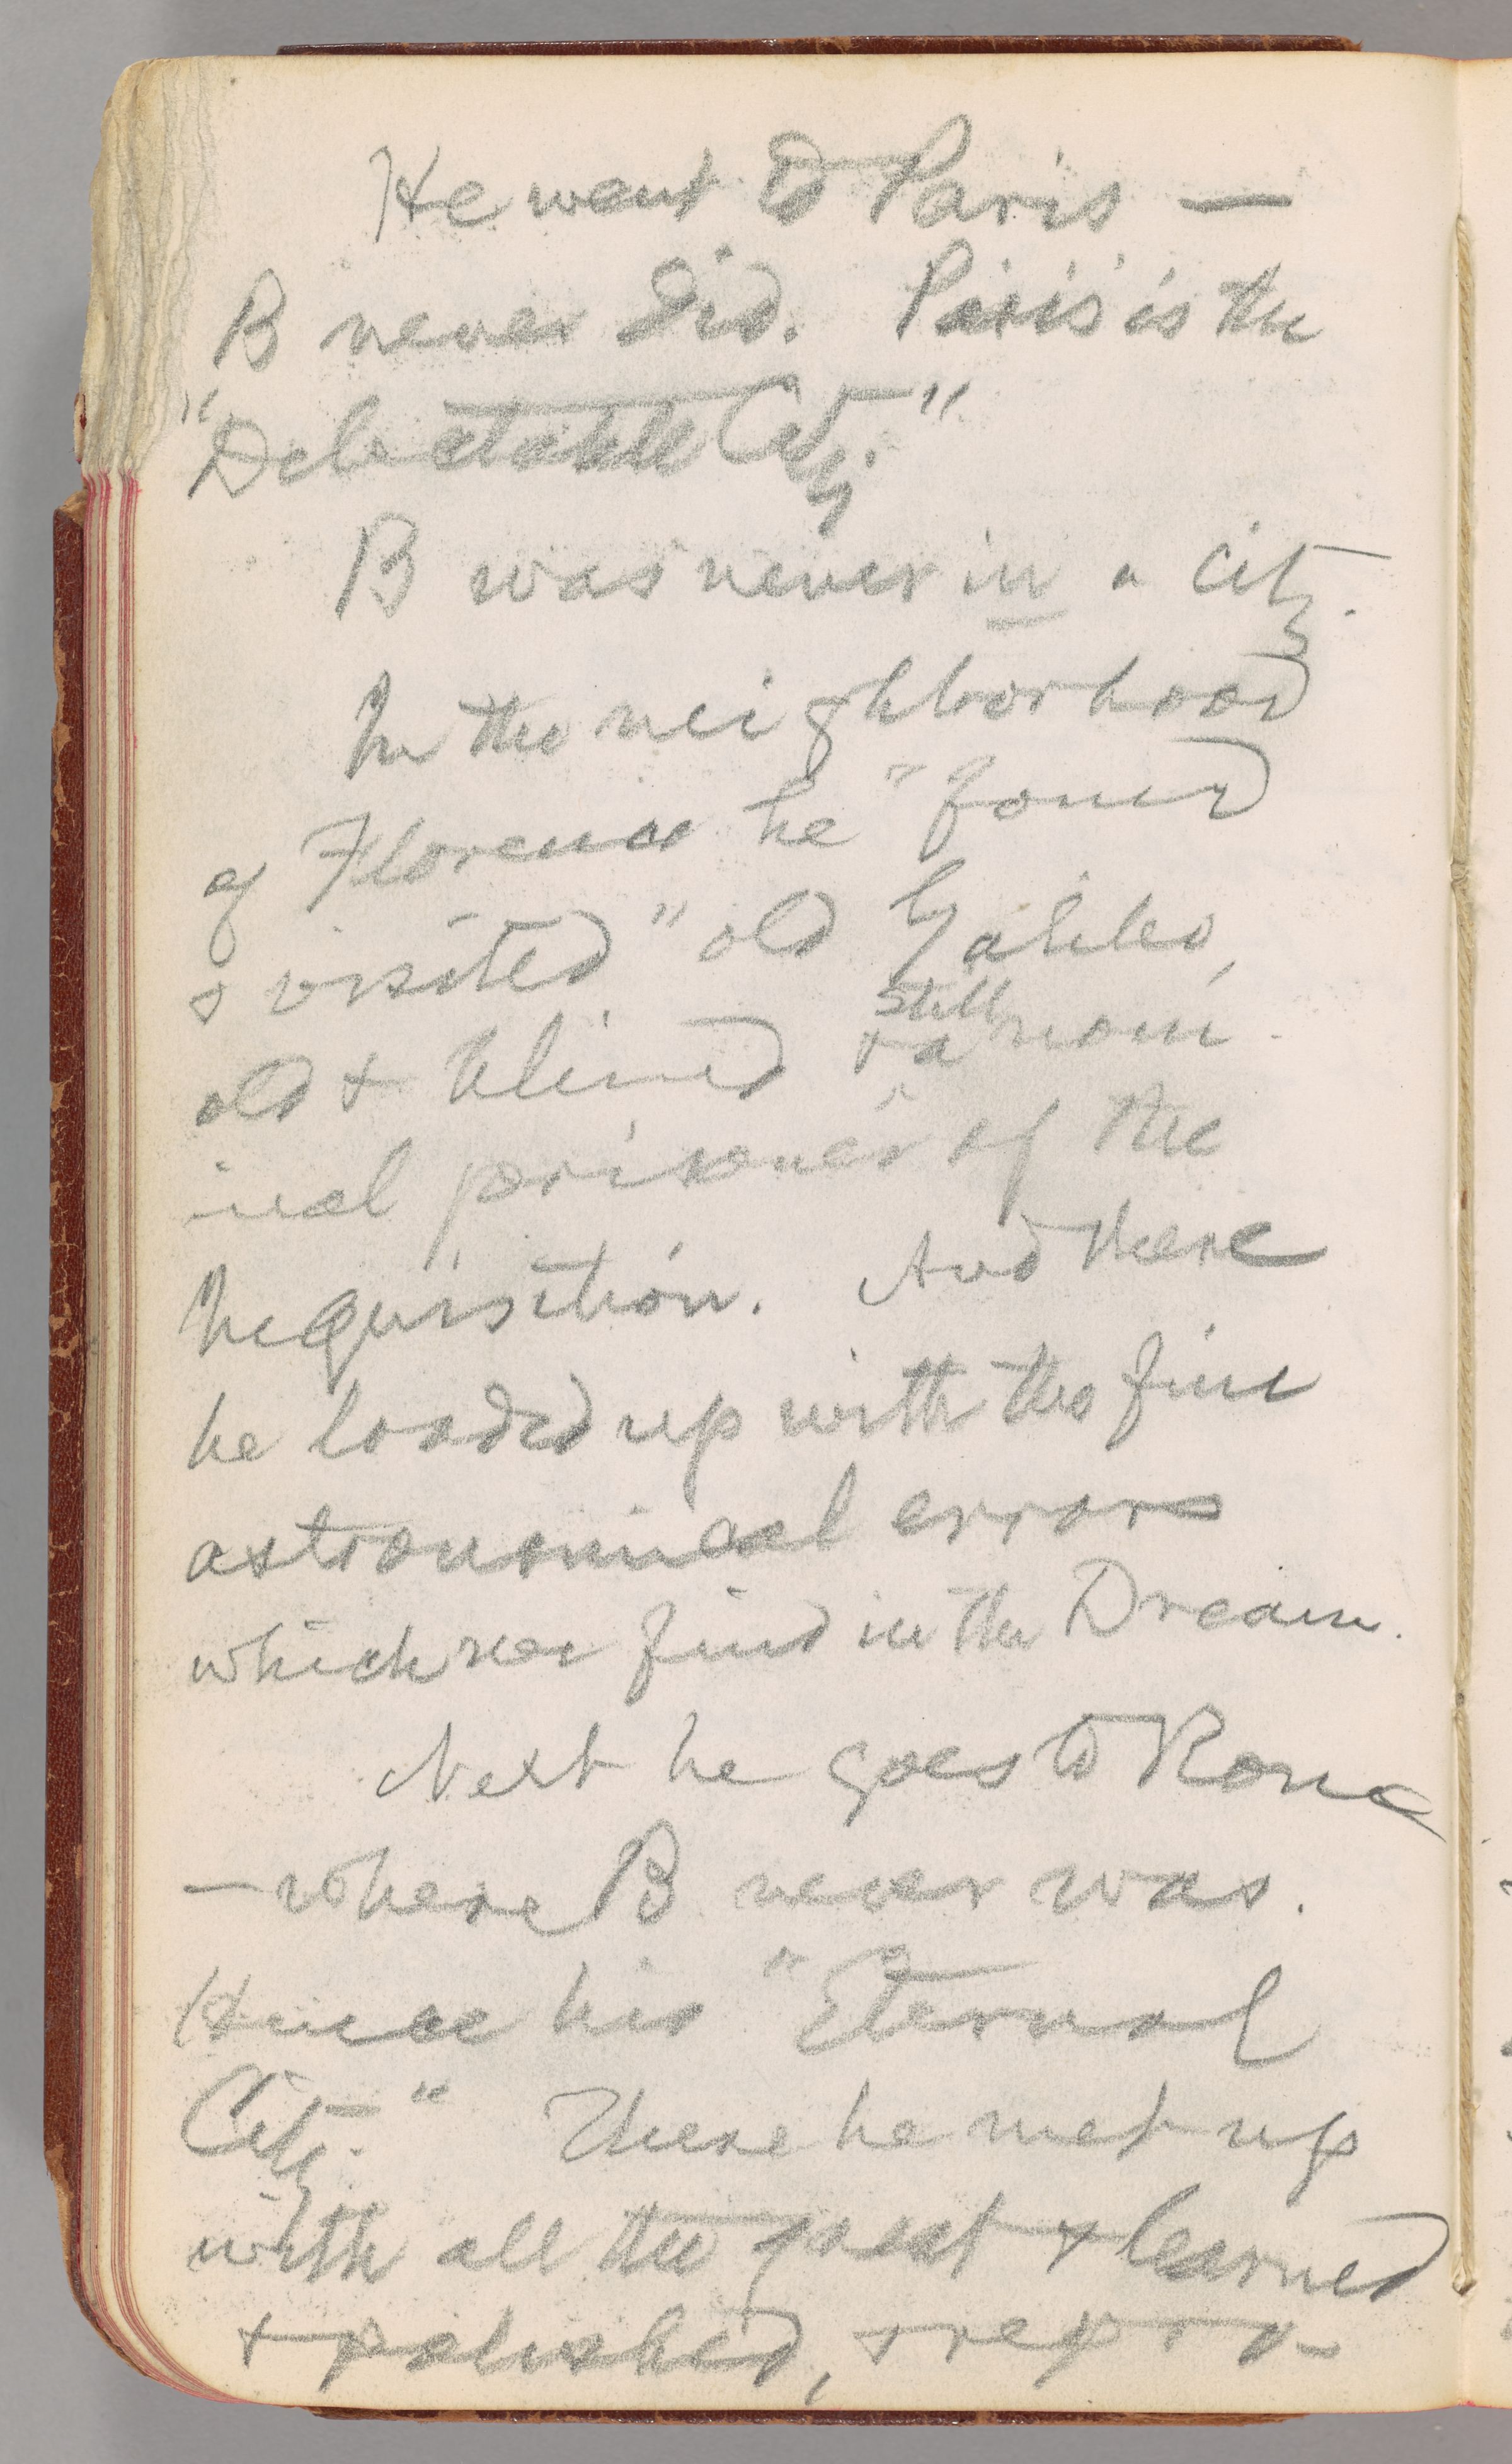 He went to Paris —
B never did. Paris is the
"Delectable City."
B was never in a city.
In the neighborhood
of Florence he "found
& visited" old Galileo,
old & blind & a still nom-
inal prisoner of the
Inquisition. And there
he loaded up with the fine
astronomical errors
which we find in the Dream.
Next he goes to Rome
— where B never was.
Hence his "Eternal
City." There he met up
with all the great & learned
& polished, & repro-